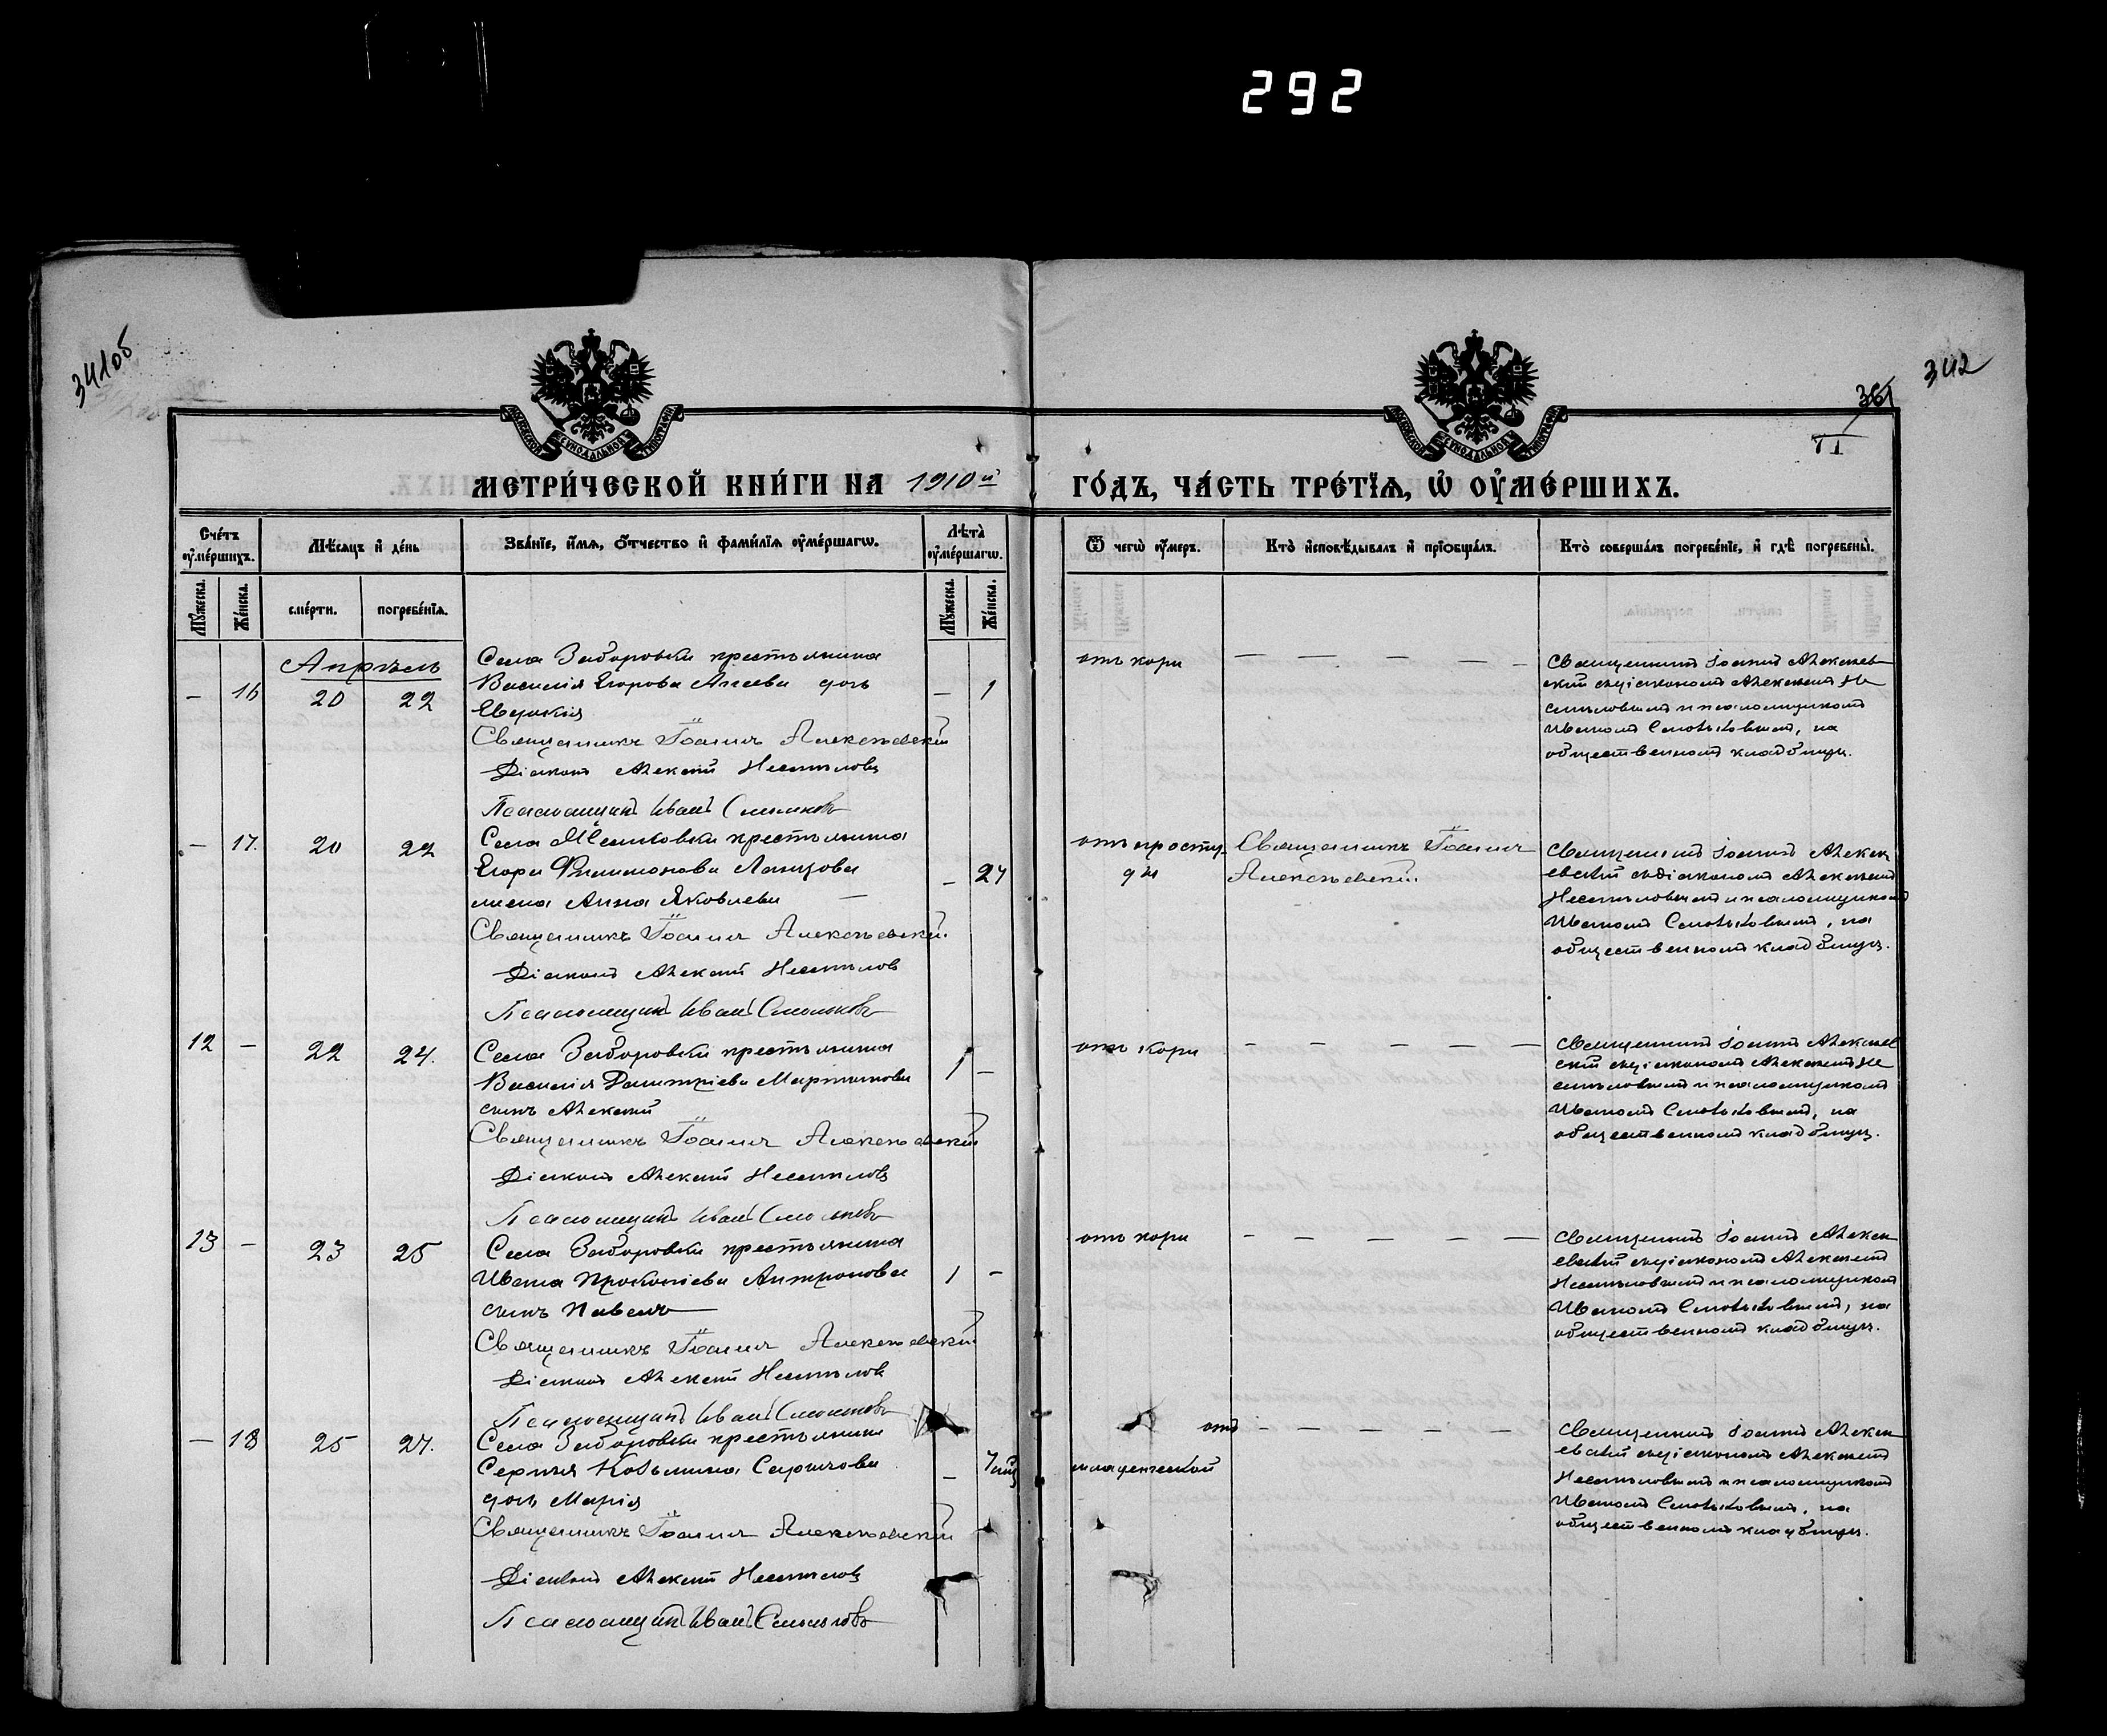 292
341об
342
361
71
МЕТРИ́ЧЕСКОЙ КНИ́ГИ НА 1910й ГО́ДЪ, ЧА́СТЬ ТРЕ́ТЇѦ, Ѡ҆ ОУ҆МЕ́РШИХЪ.
Сче́тъ оу҆ме́ршихъ.
Мѣ́сѧцъ и҆ де́нь
Зва́нїе, и҆́мѧ, ѻ҆́тчество и҆ фами́лїѧ оу҆ме́ршагѡ.
Лѣ́та оу҆ме́ршагѡ.
Ѿ чегѡ̀ оу҆́меръ.
Кто̀ и҆сповѣ́дывалъ и҆ прїѻбща́лъ.
Кто̀ соверша́лъ погребе́нїе, и҆ гдѣ̀ погребены̀.
Мꙋ́жеска.
Же́нска.
сме́рти.
погребе́нїѧ.
Мꙋ́жеска.
Же́нска.
Апрѣль
Села Заборовки крестьянина
— 16 20 22 Василія Егорова Агѣева дочь — 1
Евдокія
Священникъ Іоаннъ Алексѣевскій
Діаконъ Алексѣй Несмѣловъ
Псаломщикъ Иванъ
отъ кори — — — — —
Священникъ Іоаннъ Алексѣев
скій съ діакономъ Алексѣемъ Не
смѣловымъ и псаломщикомъ
Иваномъ на
общественномъ кладбищѣ.
— 17. 20 22 Села крестьянина
Егора Филимонова — 27
жена Анна Яковлева
Священникъ Іоаннъ Алексѣевскій
Діаконъ Алексѣй Несмѣловъ
Псаломщикъ Иванъ
отъ просту-
ды
Священникъ Іоаннъ
Алексѣевскій
Священникъ Іоаннъ Алексѣ
евскій съ діакономъ Алексѣемъ
Несмѣловымъ и псаломщикомъ
Иваномъ на
общественномъ кладбищѣ.
12 — 22 24. Села Заборовки крестьянина
Василія Димитріева Мартынова 1 —
сынъ Алексѣй
Священникъ Іоаннъ Алексѣевскій
Діаконъ Алексѣй Несмѣловъ
Псаломщикъ Иванъ
отъ кори — — — — —
Священникъ Іоаннъ Алексѣев
скій съ діакономъ Алексѣемъ Не
смѣловымъ и псаломщикомъ
Иваномъ на
общественномъ кладбищѣ.
13 — 23 25 Села Заборовки крестьянина
Ивана Прокопіева Антропова 1 —
сынъ Павелъ
Священникъ Іоаннъ Алексѣевскій
Діаконъ Алексѣй Несмѣловъ
Псаломщикъ Иванъ
отъ кори — — — — —
Священникъ Іоаннъ Алексѣ
евскій съ діакономъ Алексѣемъ
Несмѣловымъ и псаломщикомъ
Иваномъ на
общественномъ кладбищѣ.
— 18 25 27. Села Заборовки крестьянина
Сергѣя Козьмина — 7 мѣс
дочь Марія
Священникъ Іоаннъ Алексѣевскій
Діаконъ Алексѣй Несмѣловъ
Псаломщикъ Иванъ
отъ — — — — —
младенческой
Священникъ Іоаннъ Алексѣ
евскій съ діакономъ Алексѣемъ
Несмѣловымъ и псаломщикомъ
Иваномъ на
общественномъ кладбищѣ.